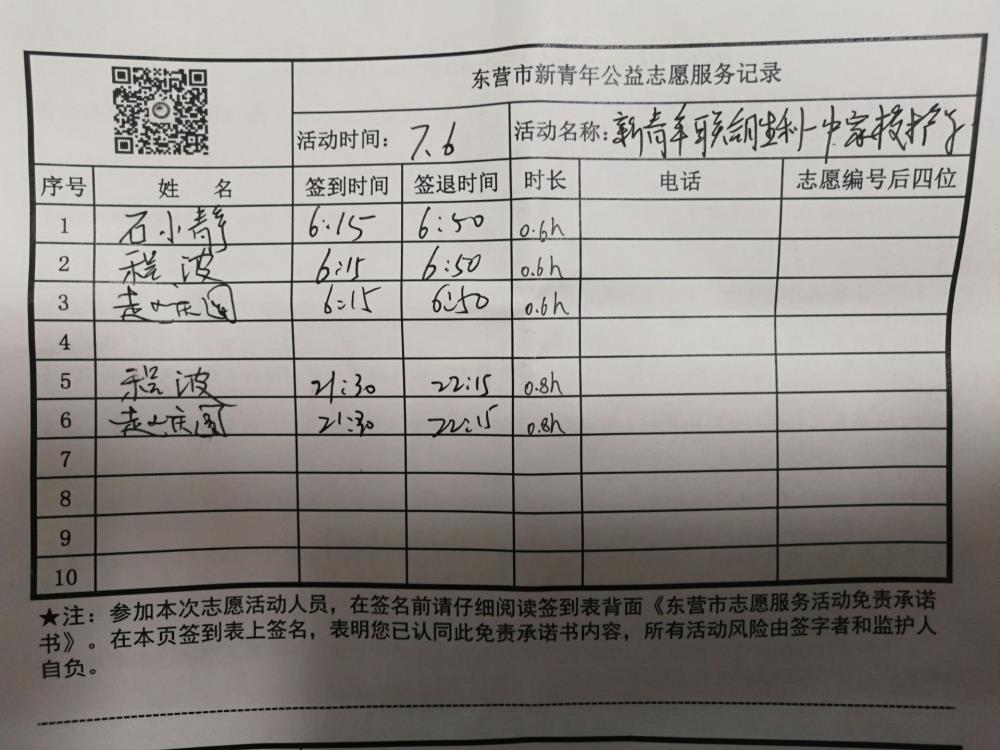 东营市新青年公益志愿服务记录
活动时间： 7.6 活动名称: 新青年联合胜利一中家校护
序号 姓 名 签到时间 签退时间 时长 电话 志愿编号后四位
1 石小静 6:15 6:50 0.6h
2 程波 6:15 6:50 0.6h
3 6:15 6:50 0.6h
4
5 程波 21:30 22:15 0.8h
6 21:30 22:15 0.8h
7
8
9
10
★注：参加本次志愿活动人员，在签名前请仔细阅读签到表背面《东营市志愿服务活动免责承诺
书》。在本页签到表上签名，表明您已认同此免责承诺书内容，所有活动风险由签字者和监护人
自负。